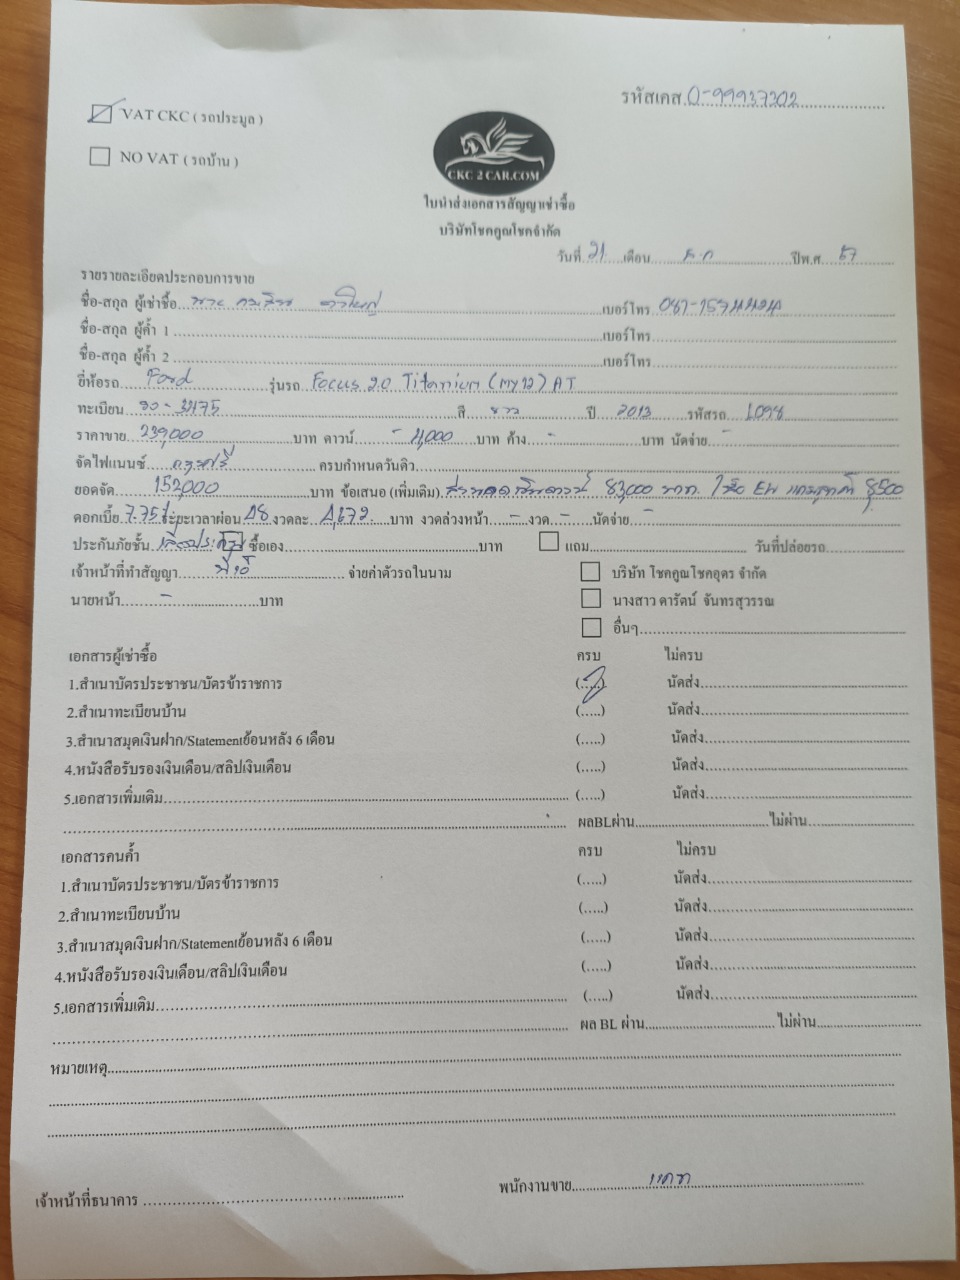 รหัสเคส 0-99937302
VAT CKC ( รถประมูล )
NO VAT ( รถบ้าน )
CKC 2 CAR.COM
ใบนำส่งเอกสารสัญญาเช่าซื้อ
บริษัทโชคคูณโชคจำกัด
วันที่ 21 เดือน ปีพ.ศ 67
รายรายละเอียดประกอบการขาย
ชื่อ-สกุล ผู้เช่าซื้อ เบอร์โทร
ชื่อ-สกุล ผู้ค้ำ 1 เบอร์โทร
ชื่อ-สกุล ผู้ค้ำ 2 เบอร์โทร
ยี่ห้อรถ Ford รุ่นรถ Focus 2.0 Titanium (MY12) AT
ทะเบียน สี ขาว ปี 2013 รหัสรถ 1098
ราคาขาย 239,000 บาท ดาวน์ - 4,000 บาท ค้าง - บาท นัดจ่าย -
จัดไฟแนนซ์ กรุงศรี ครบกำหนดวันดิว
ยอดจัด 152,000 บาท ข้อเสนอ (เพิ่มเติม) 83,000 บาท 8,500
ดอกเบี้ย 7.75% ระยะเวลาผ่อน 48 งวดละ 4,672 บาท งวดล่วงหน้า - งวด - นัดจ่าย -
ประกันภัยชั้น ซื้อเอง บาท แถม วันที่ปล่อยรถ
เจ้าหน้าที่ทำสัญญา จ่ายค่าตัวรถในนาม บริษัท โชคคูณโชคอุดร จำกัด
นายหน้า - บาท นางสาว ดารัตน์ จันทรสุวรรณ
อื่นๆ
เอกสารผู้เช่าซื้อ ครบ ไม่ครบ
1.สำเนาบัตรประชาชน/บัตรข้าราชการ (.....) นัดส่ง
2.สำเนาทะเบียนบ้าน (.....) นัดส่ง
3.สำเนาสมุดเงินฝาก/Statementย้อนหลัง 6 เดือน (.....) นัดส่ง
4.หนังสือรับรองเงินเดือน/สลิปเงินเดือน (.....) นัดส่ง
5.เอกสารเพิ่มเติม (.....) นัดส่ง
ผลBLผ่าน ไม่ผ่าน
เอกสารคนค้ำ ครบ ไม่ครบ
1.สำเนาบัตรประชาชน/บัตรข้าราชการ (.....) นัดส่ง
2.สำเนาทะเบียนบ้าน (.....) นัดส่ง
3.สำเนาสมุดเงินฝาก/Statementย้อนหลัง 6 เดือน (.....) นัดส่ง
4.หนังสือรับรองเงินเดือน/สลิปเงินเดือน (.....) นัดส่ง
5.เอกสารเพิ่มเติม (.....) นัดส่ง
ผล BL ผ่าน ไม่ผ่าน
หมายเหตุ
พนักงานขาย
เจ้าหน้าที่ธนาคาร